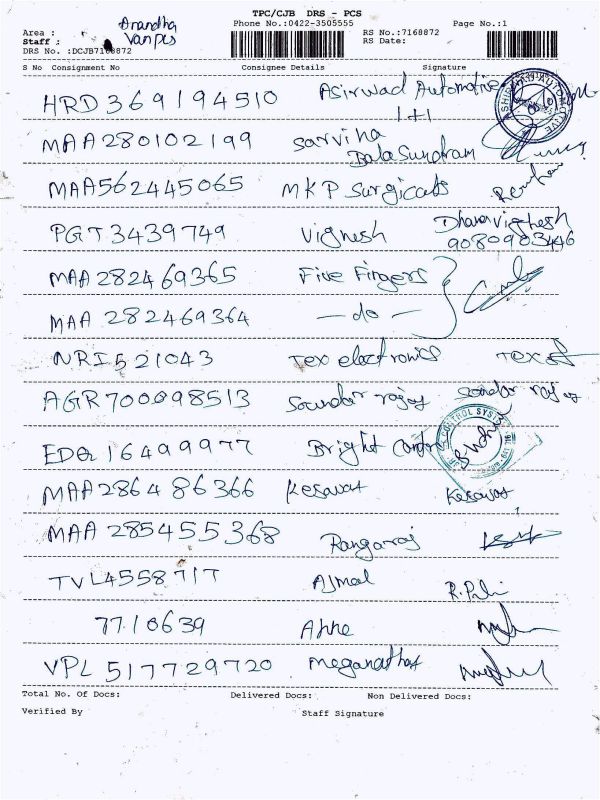 TPC/CJB DRS - PCS
Phone No.:0422-3505555 Page No.:1
Area : Anandha
Staff : Van pcs
RS No.:7168872
RS Date:
DRS No.:DCJB7168872
S No Consignment No Consignee Details Signature
HRD 369194510 Asirwad Automotive
1+1
MAA 280102199 Sarvina
Bala Sundram
MAA562445065 MKP Surgicals
PGT3439749 Vignesh Dhanavignesh
9080903446
MAA 282469365 Five Fingers
MAA 282469364 — do —
NRI521043 Tex electronics Texel
AGR700098513 Soundar rajaj Soundar rajaj
EDQ 16499977 Bright Control
MAA286486366 Kesavat Kesavat
MAA 285455368 Rangaraj
TVL4558717 Ajmal R.Pali
77.10639 Anne
VPL 517729720 Meganathan
Total No. Of Docs: Delivered Docs: Non Delivered Docs:
Verified By Staff Signature